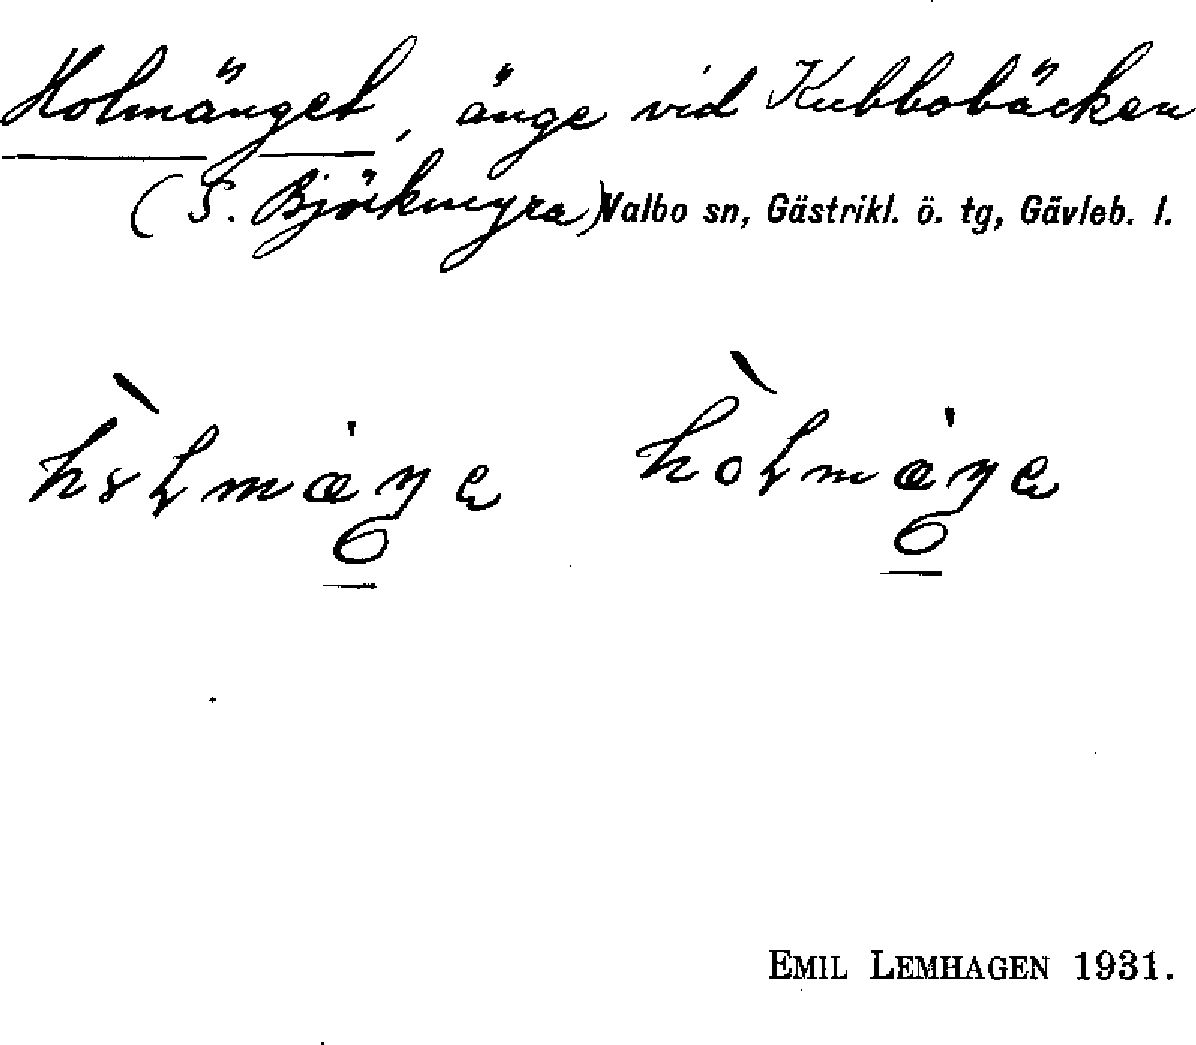 Holmänget, änge vid Kubbobäcken
(S. Björkmyra) Valbo sn, Gästrikl. ö. tg, Gävleb. l.
EMIL LEMHAGEN 1931.